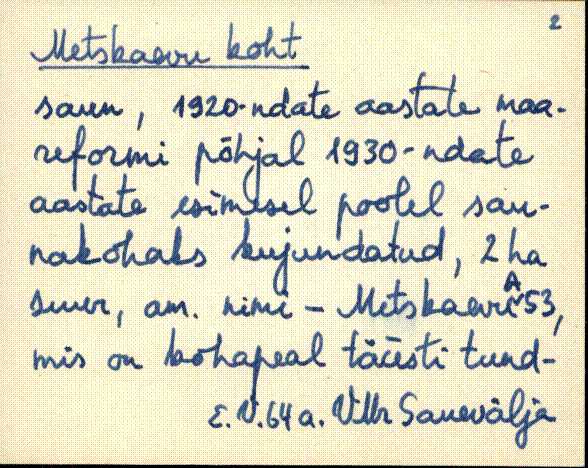 2
Metskaevu koht
saun, 1920-ndate aastate maa-
reformi põhjal 1930-ndate
aastate esimesel poolel sau-
nakohaks kujundatud, 2 ha
suur, am. nimi - Metskaevu A 53,
mis on kohapeal täiesti tund-
E. V. 64 a. Villr Sanevälja